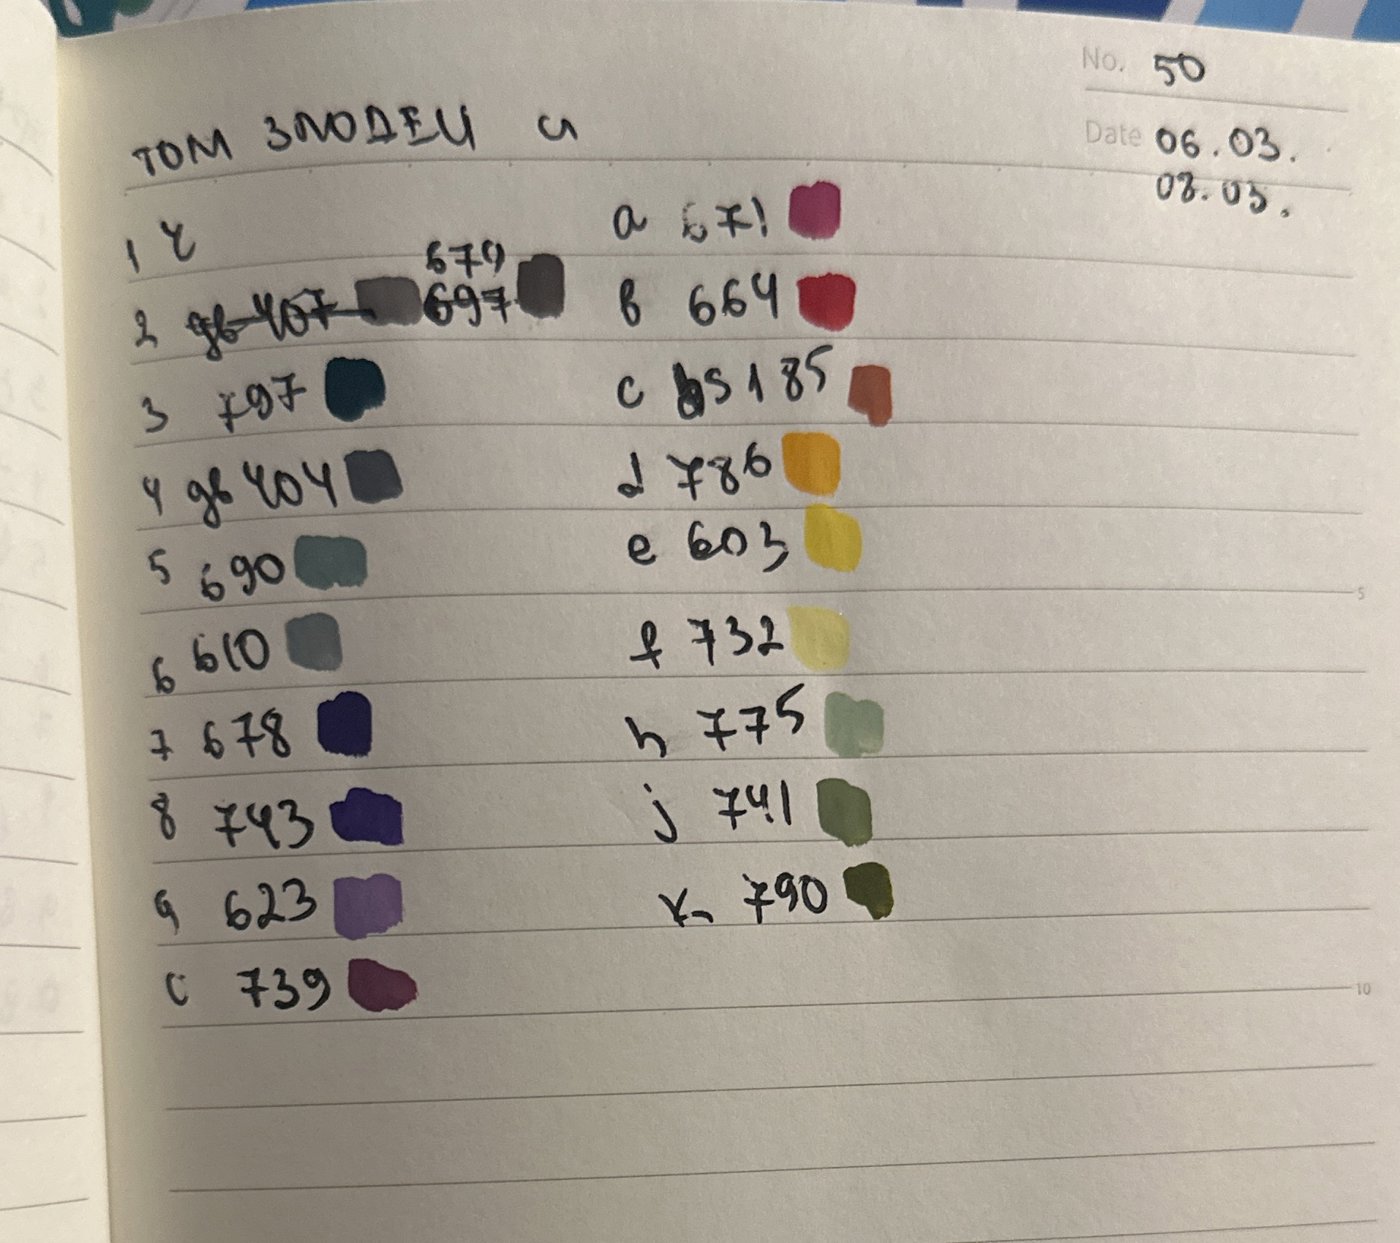 No. 50
Date 06.03.
08.03.
ТОМ ЗЛОДЕИ
1 ч
679
2 gb 407 697
3 797
4 gb 404
5 690
6 610
7 678
8 743
9 623
c 739
a 671
b 664
c bs 185
d 786
e 603
f 732
h 775
j 741
k 790
5
10